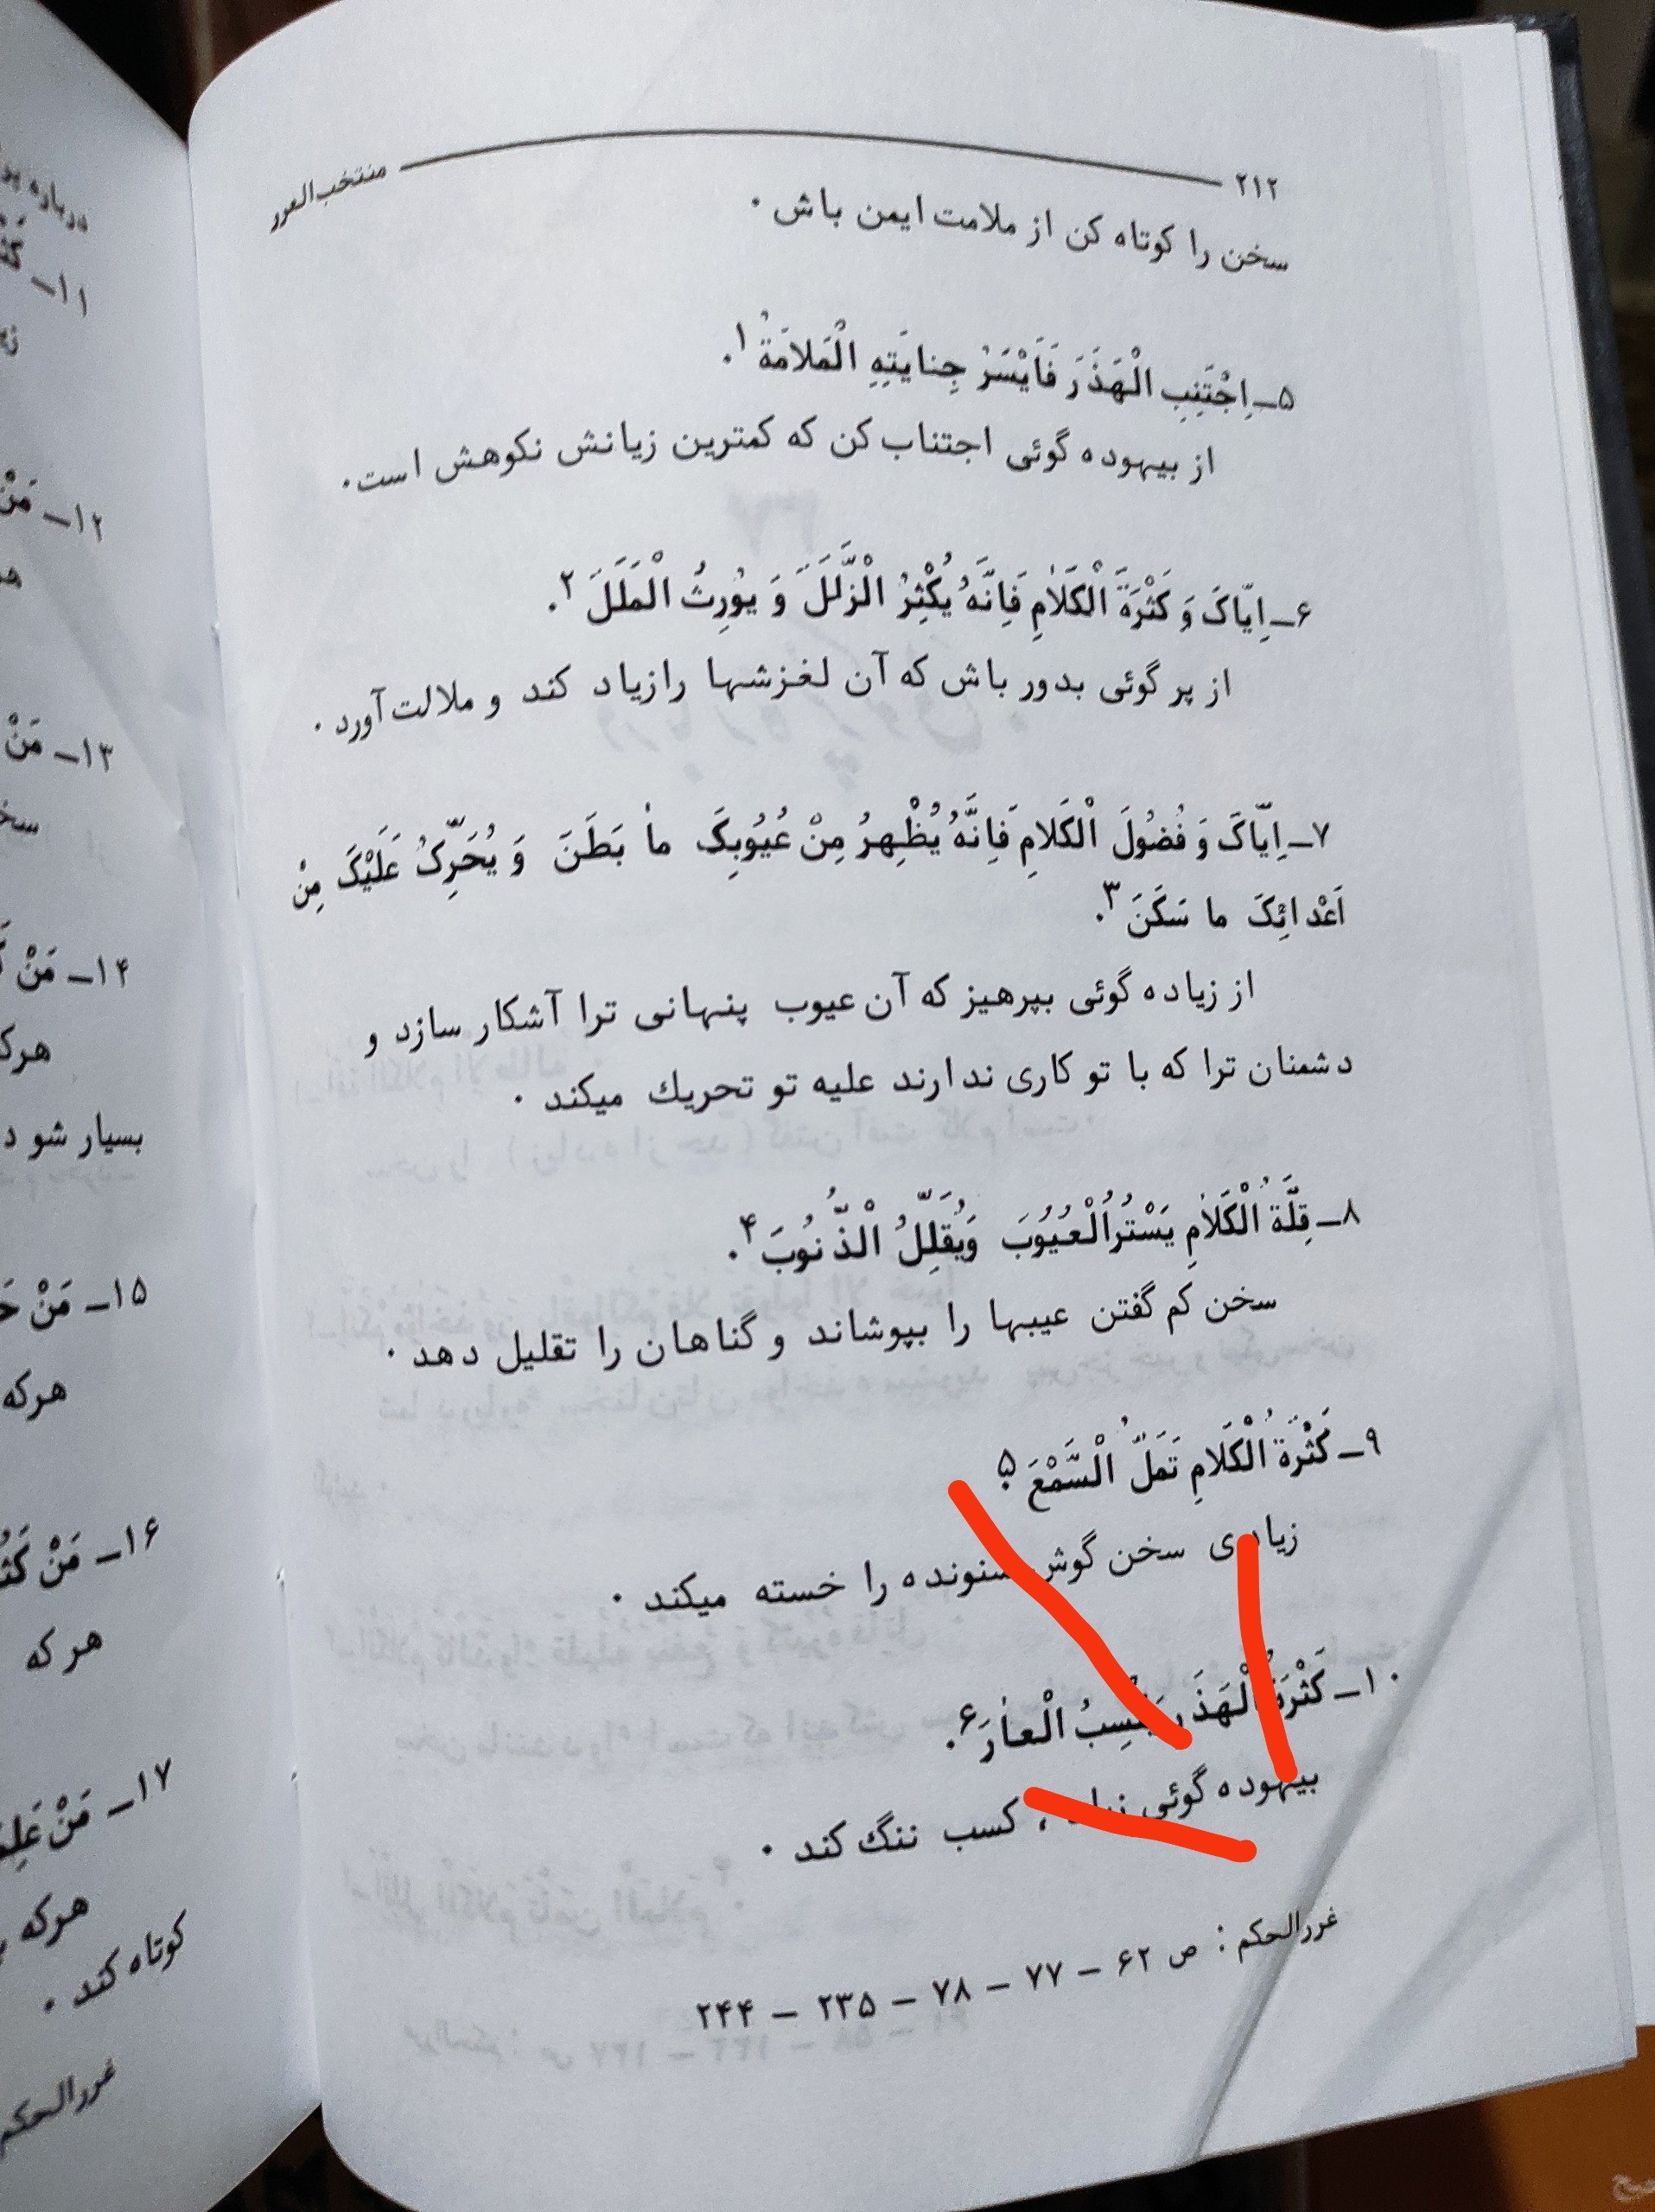 ۲۱۲ منتخب‌الغرر
سخن را کوتاه کن از ملامت ایمن باش ۰
۵ــ اِجْتَنِبِ الْهَذَرَ فَاَیْسَرُ جِنایَتِهِ الْمَلامَةُ ۱.
از بیهوده گوئی اجتناب کن که کمترین زیانش نکوهش است.
۶ــ اِیّاکَ وَ کَثْرَةَ الْکَلامِ فَاِنَّهُ یُکْثِرُ الْزَّلَلَ وَ یُورِثُ الْمَلَلَ ۲.
از پر گوئی بدور باش که آن لغزشها را زیاد کند و ملالت آورد ۰
۷ــ اِیّاکَ وَ فُضُولَ الْکَلامِ فَاِنَّهُ یُظْهِرُ مِنْ عُیُوبِکَ ما بَطَنَ وَ یُحَرِّکُ عَلَیْکَ مِنْ
اَعْدائِکَ ما سَکَنَ ۳.
از زیاده گوئی بپرهیز که آن عیوب پنهانی ترا آشکار سازد و
دشمنان ترا که با تو کاری ندارند علیه تو تحریك میکند ۰
۸ــ قِلَّةُ الْکَلامِ یَسْتُرُ الْعُیُوبَ وَیُقَلِّلُ الْذُّنُوبَ ۴.
سخن کم گفتن عیبها را بپوشاند و گناهان را تقلیل دهد ۰
۹ــ کَثْرَةُ الْکَلامِ تَمَلُّ الْسَّمْعَ ۵.
زیادی سخن گوش شنونده را خسته میکند ۰
۱۰ــ کَثْرَةُ الْهَذَرِ یَکْسِبُ الْعارَ ۶.
بیهوده گوئی زیاد ، کسب ننگ کند ۰
غررالحکم : ص ۶۲ – ۷۷ – ۷۸ – ۲۳۵ – ۲۴۴
۱۱ــ
۱۲ــ مَنْ
۱۳ــ مَنْ
۱۴ــ مَنْ
هرکه
بسیار شود
۱۵ــ مَنْ
هرکه
۱۶ــ مَنْ
هرکه
۱۷ــ مَنْ
هرکه
کوتاه کند ۰
غررالحکم